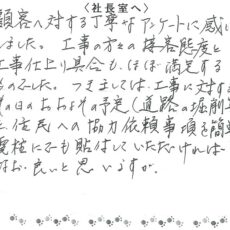 〈社長室へ〉
顧客へ対する丁寧なアンケートに感じ
しました。工事の方々の接客態度と
工事仕上り具合も、ほぼ満足する
ものでした。つきましては、工事に対する
の日のおおよその予定(道路の掘削
と、住民への協力依頼事項を簡単
電柱にでも貼付していただければ
なお、良いと思いますが。